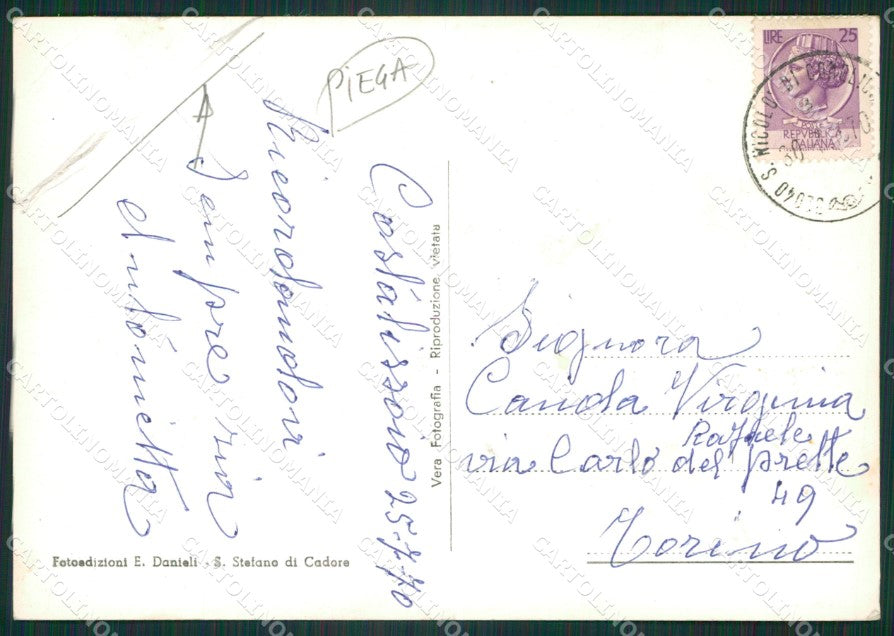 PIEGA
Costalissoio 25.7.70
Ricordandovi
Sempre
Antonietta
Vera Fotografia - Riproduzione vietata
Fotoedizioni E. Danieli - S. Stefano di Cadore
LIRE 25
POSTE
REPVBBLICA
ITALIANA
S. NICOLO' DI COMELICO
30
Signora
Canola Virginia
Raffaele
via Carlo del prete
49
Torino
CARTOLINOMANIA